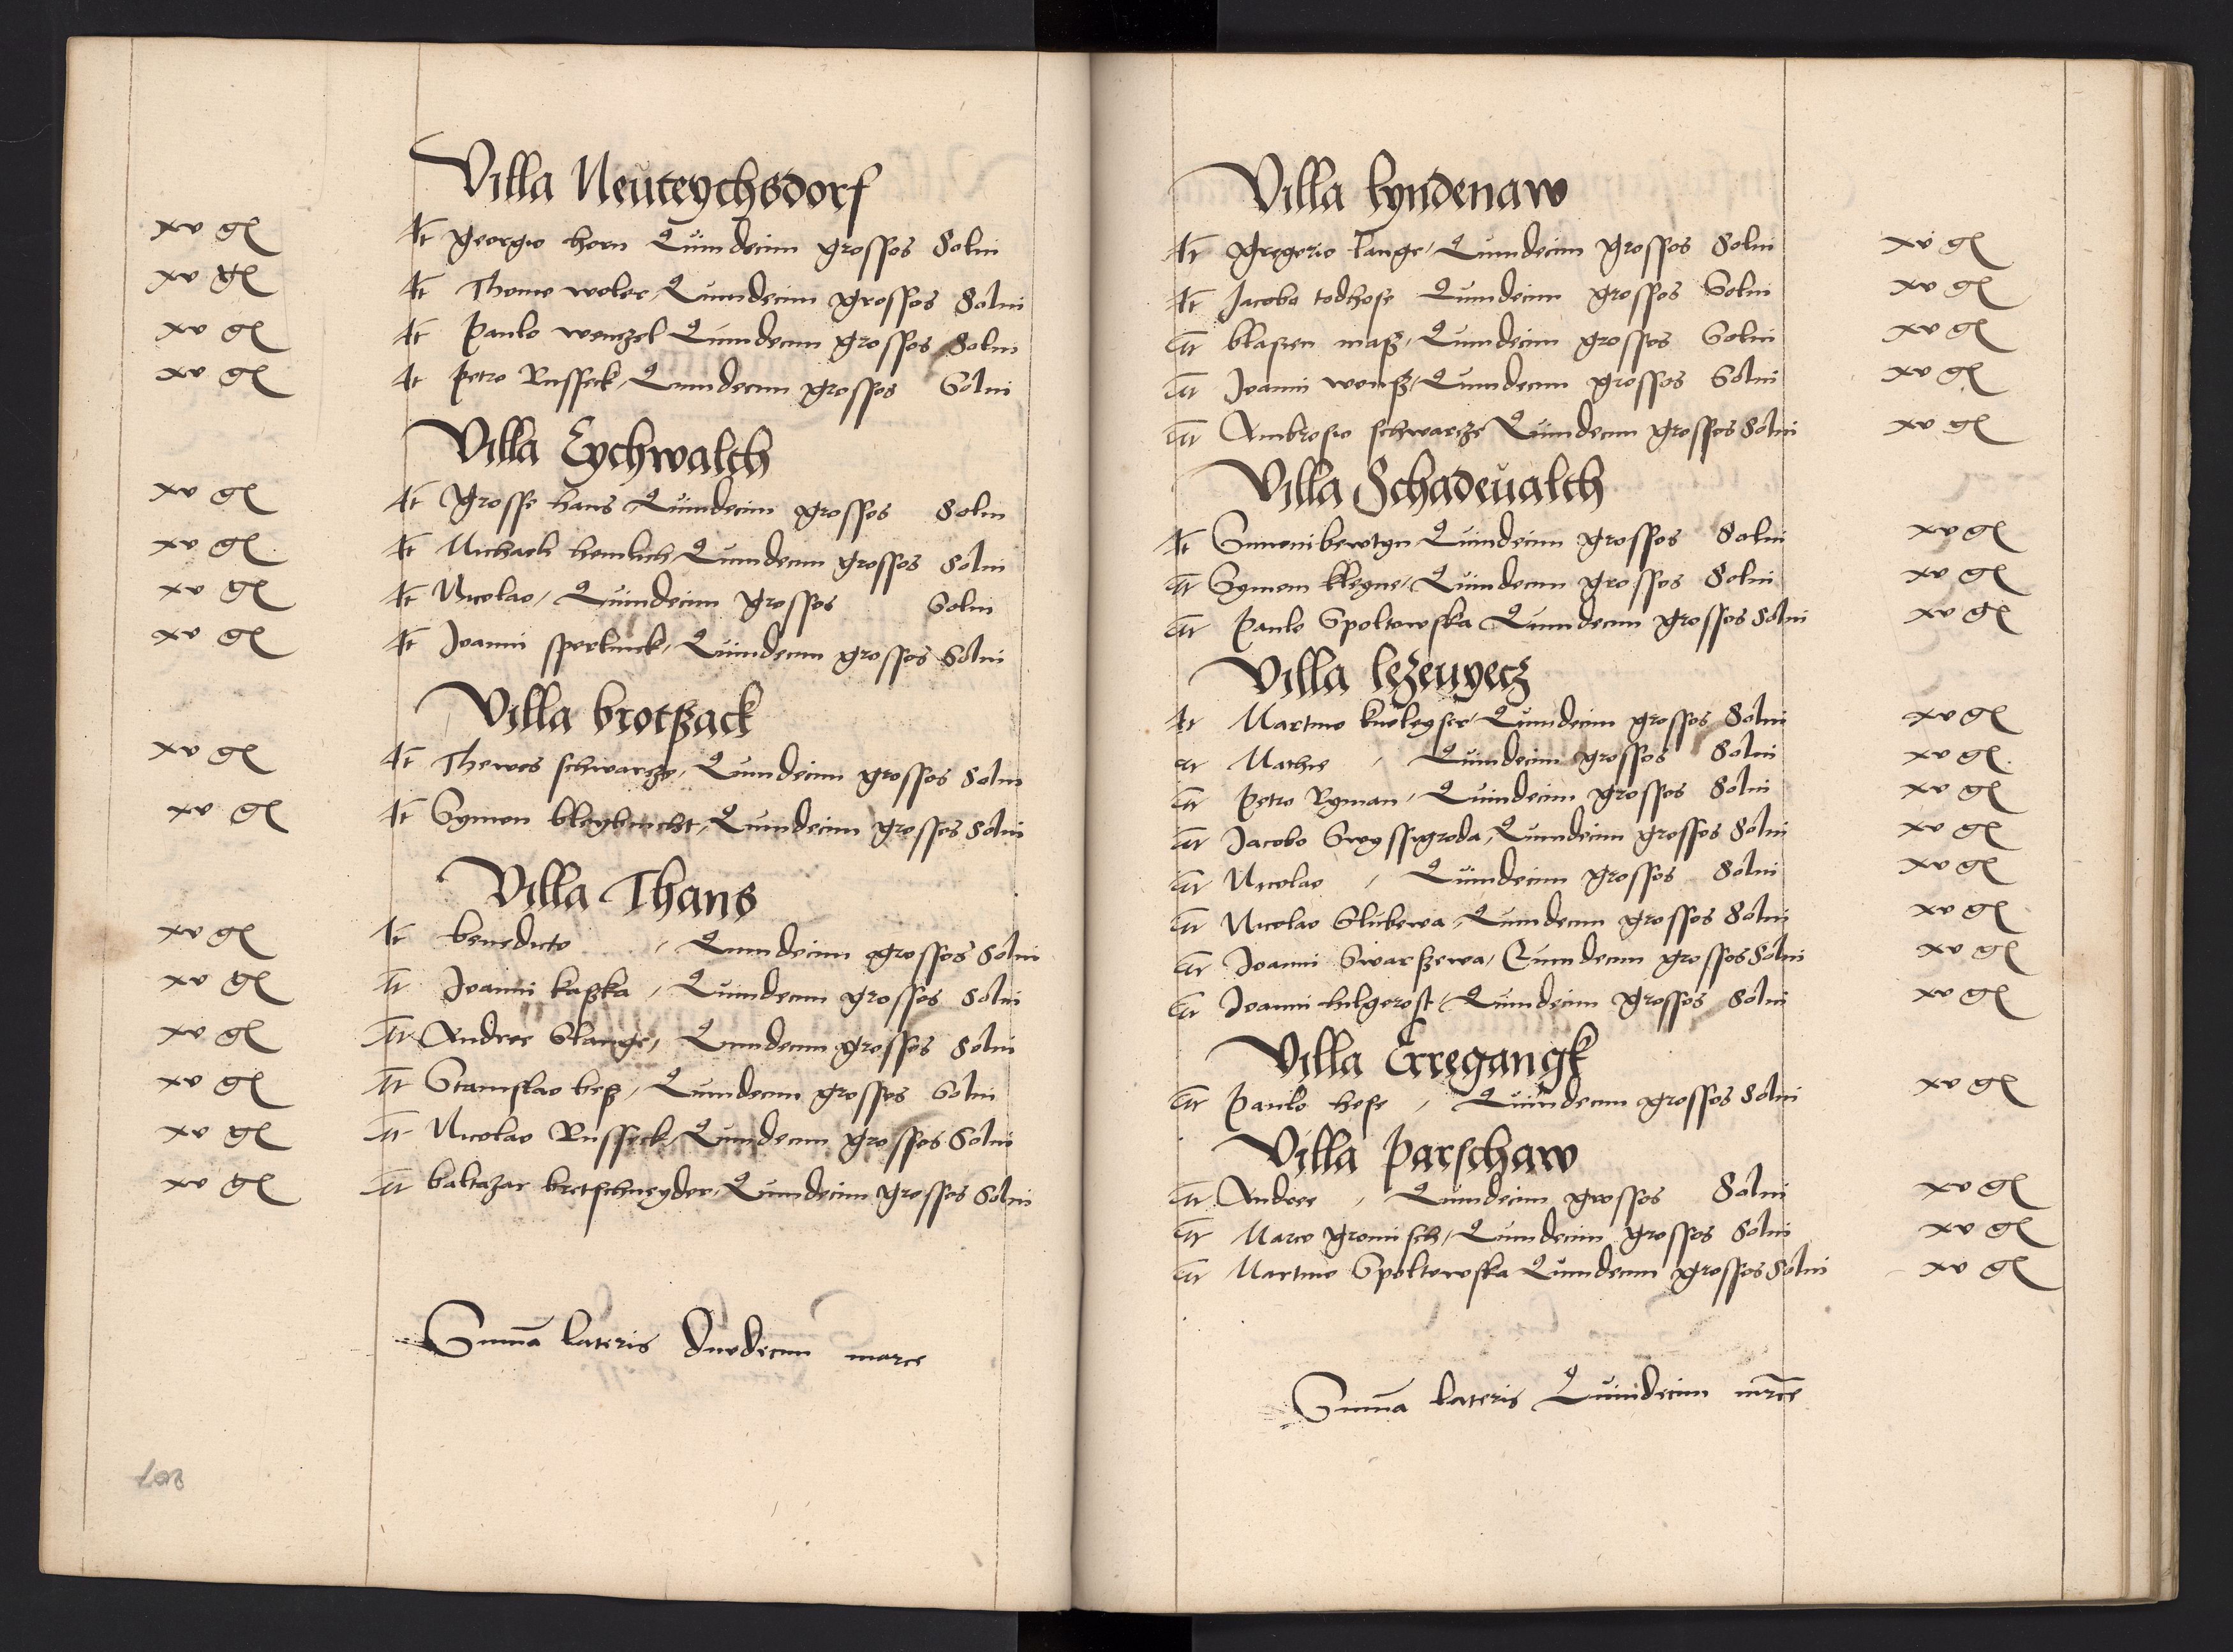 Villa Neuteychsdorf
xv gl It georgio horn Quindecim grossos Solui
xv gl It Thome weler, Quindecim grossos Solui
xv gl It Paulo wenczel Quindecim grossos Solui
xv gl It petro Russeck, Quindecim grossos Solui
Villa Eychwalth
xv gl It Grosse hans Quindecim grossos Solui
xv gl It Michaeli hemlich, Quindecim grossos Solui
xv gl It Nicolao, Quindecim grossos Solui
xv gl It Joanni sperlinck, Quindecim grossos Solui
Villa brotßack
xv gl It Thewes schwarcze, Quindecim grossos Solui
xv gl It Symon kleyknecht, Quindecim grossos Solui
Villa Thans
xv gl It benedicto, Quindecim grossos Solui
xv gl It Joanni kaßka, Quindecim grossos Solui
xv gl It Andree Glange, Quindecim grossos Solui
xv gl It Stanislao beß, Quindecim grossos Solui
xv gl It Nicolao Russeck, Quindecim grossos Solui
xv gl It baltazar bretschneyder, Quindecim grossos Solui
Suma lateris duodecim marce
Villa lyndenaw
It gregorio lange, Quindecim grossos Solui xv gl
It Jacobo todhose Quindecim grossos Solui xv gl
It blasien maß, Quindecim grossos Solui xv gl
It Joanni wonß, Quindecim grossos Solui xv gl
It Ambrosio schwarcze Quindecim grossos Solui xv gl
Villa Schadeualth
It Simoni bewtyn Quindecim grossos Solui xv gl
It Symoni kleyne, Quindecim grossos Solui xv gl
It Paulo Spoltowska Quindecim grossos Solui xv gl
Villa lezeuyecz
It Martino kneleyser, Quindecim grossos Solui xv gl
It Mathie, Quindecim grossos Solui xv gl
It Petro Ryman, Quindecim grossos Solui xv gl
It Jacobo Swyssigroda, Quindecim grossos Solui xv gl
It Nicolao, Quindecim grossos Solui xv gl
It Nicolao Glukewa, Quindecim grossos Solui xv gl
It Joanni Swarßewa, Quindecim grossos Solui xv gl
It Joanni hilgerost, Quindecim grossos Solui xv gl
Villa Erregangk
It Paulo hose, Quindecim grossos Solui xv gl
Villa Parschaw
It Andree, Quindecim grossos Solui xv gl
It Marco gromisch, Quindecim grossos Solui xv gl
It Martino Spoltowska Quindecim grossos Solui xv gl
Suma lateris Quindecim mrce